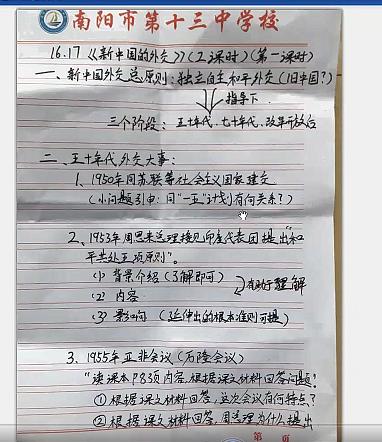 南阳市第十三中学校
16.17《新中国的外交》(2课时)(第一课时)
一、新中国外交总原则:独立自主和平外交(旧中国?)
指导下
三个阶段:五十年代、七十年代、改革开放后
二、五十年代外交大事:
1、1950年同苏联等社会主义国家建交
(小问题引申:同“一五”计划有何关系?)
2、1953年周恩来总理接见印度代表团提出“和
平共处五项原则”。
(1) 背景介绍(了解即可)
有助于理解
(2) 内容
(3) 影响(延伸出的根本准则可提)
3、1955年亚非会议(万隆会议)
“读课本P83页内容,根据课文材料回答问题?
①根据课文材料回答,这次会议有何特点?
②根据课文材料回答,周总理为什么提出
第 页